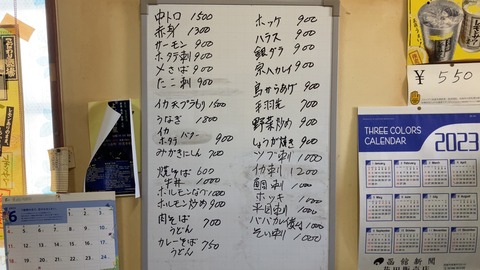 中トロ 1500
赤身 1300
サーモン 900
ホタテ刺 900
〆さば 900
たこ刺 900
イカ天プラもり 1500
うなぎ 1800
イカ バター
ホタテ 900
みがきにしん 700
焼そば 600
牛丼 1000
ホルモンなべ 1000
ホルモン炒め 900
肉そば
うどん 700
カレーそば
うどん 750
ホッケ 900
ハラス 900
銀ダラ 900
宗八カレイ 900
鳥からあげ 900
手羽先 700
野菜炒め 900
しょうが焼き 900
ツブ刺 1000
イカ刺 1200
鯛刺 1000
ホッキ 1000
平目刺 1000
ババカレイ煮付 1000
そい刺 1000
¥550
THREE COLORS
CALENDAR
2023
函館新聞
6